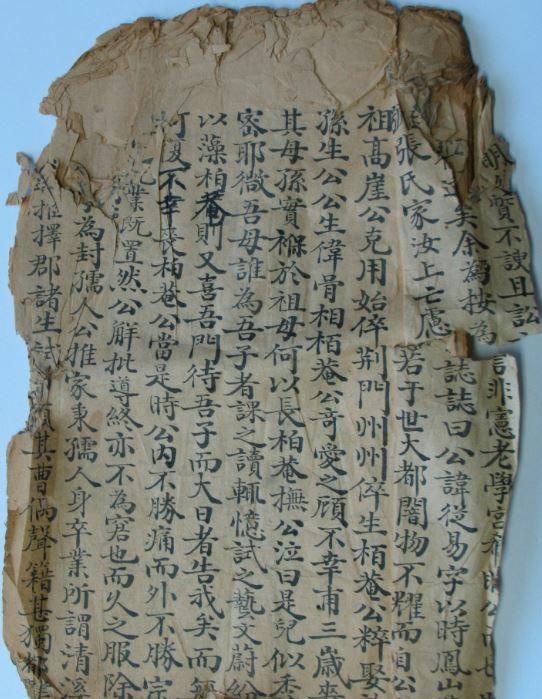 明史質不諛且訟言非憲老學宮
矣余為按為誌誌曰公諱從易字以時鳳山
張氏家汝上亡慮若于世大都闇物不耀而自公
祖高崖公克用始倅荆門州州倅生栢菴公粹娶
孫生公公生偉骨相栢菴公奇愛之顧不幸甫三歲
其母孫實褓於祖母何以長柏菴撫公泣曰是兒似
密耶微吾母誰為吾子者課之讀輒憶試之藝文蔚
以藻柏菴則又喜吾門待吾子而大日者告我矣而
可復不幸喪柏菴公當是時公內不勝痛而外不勝宗
業既置然公觧批導終亦不為窘也而久之服除
為封孺人公推家柬孺人身卒業所謂清
推擇郡諸生試其曹偶聲籍甚獨